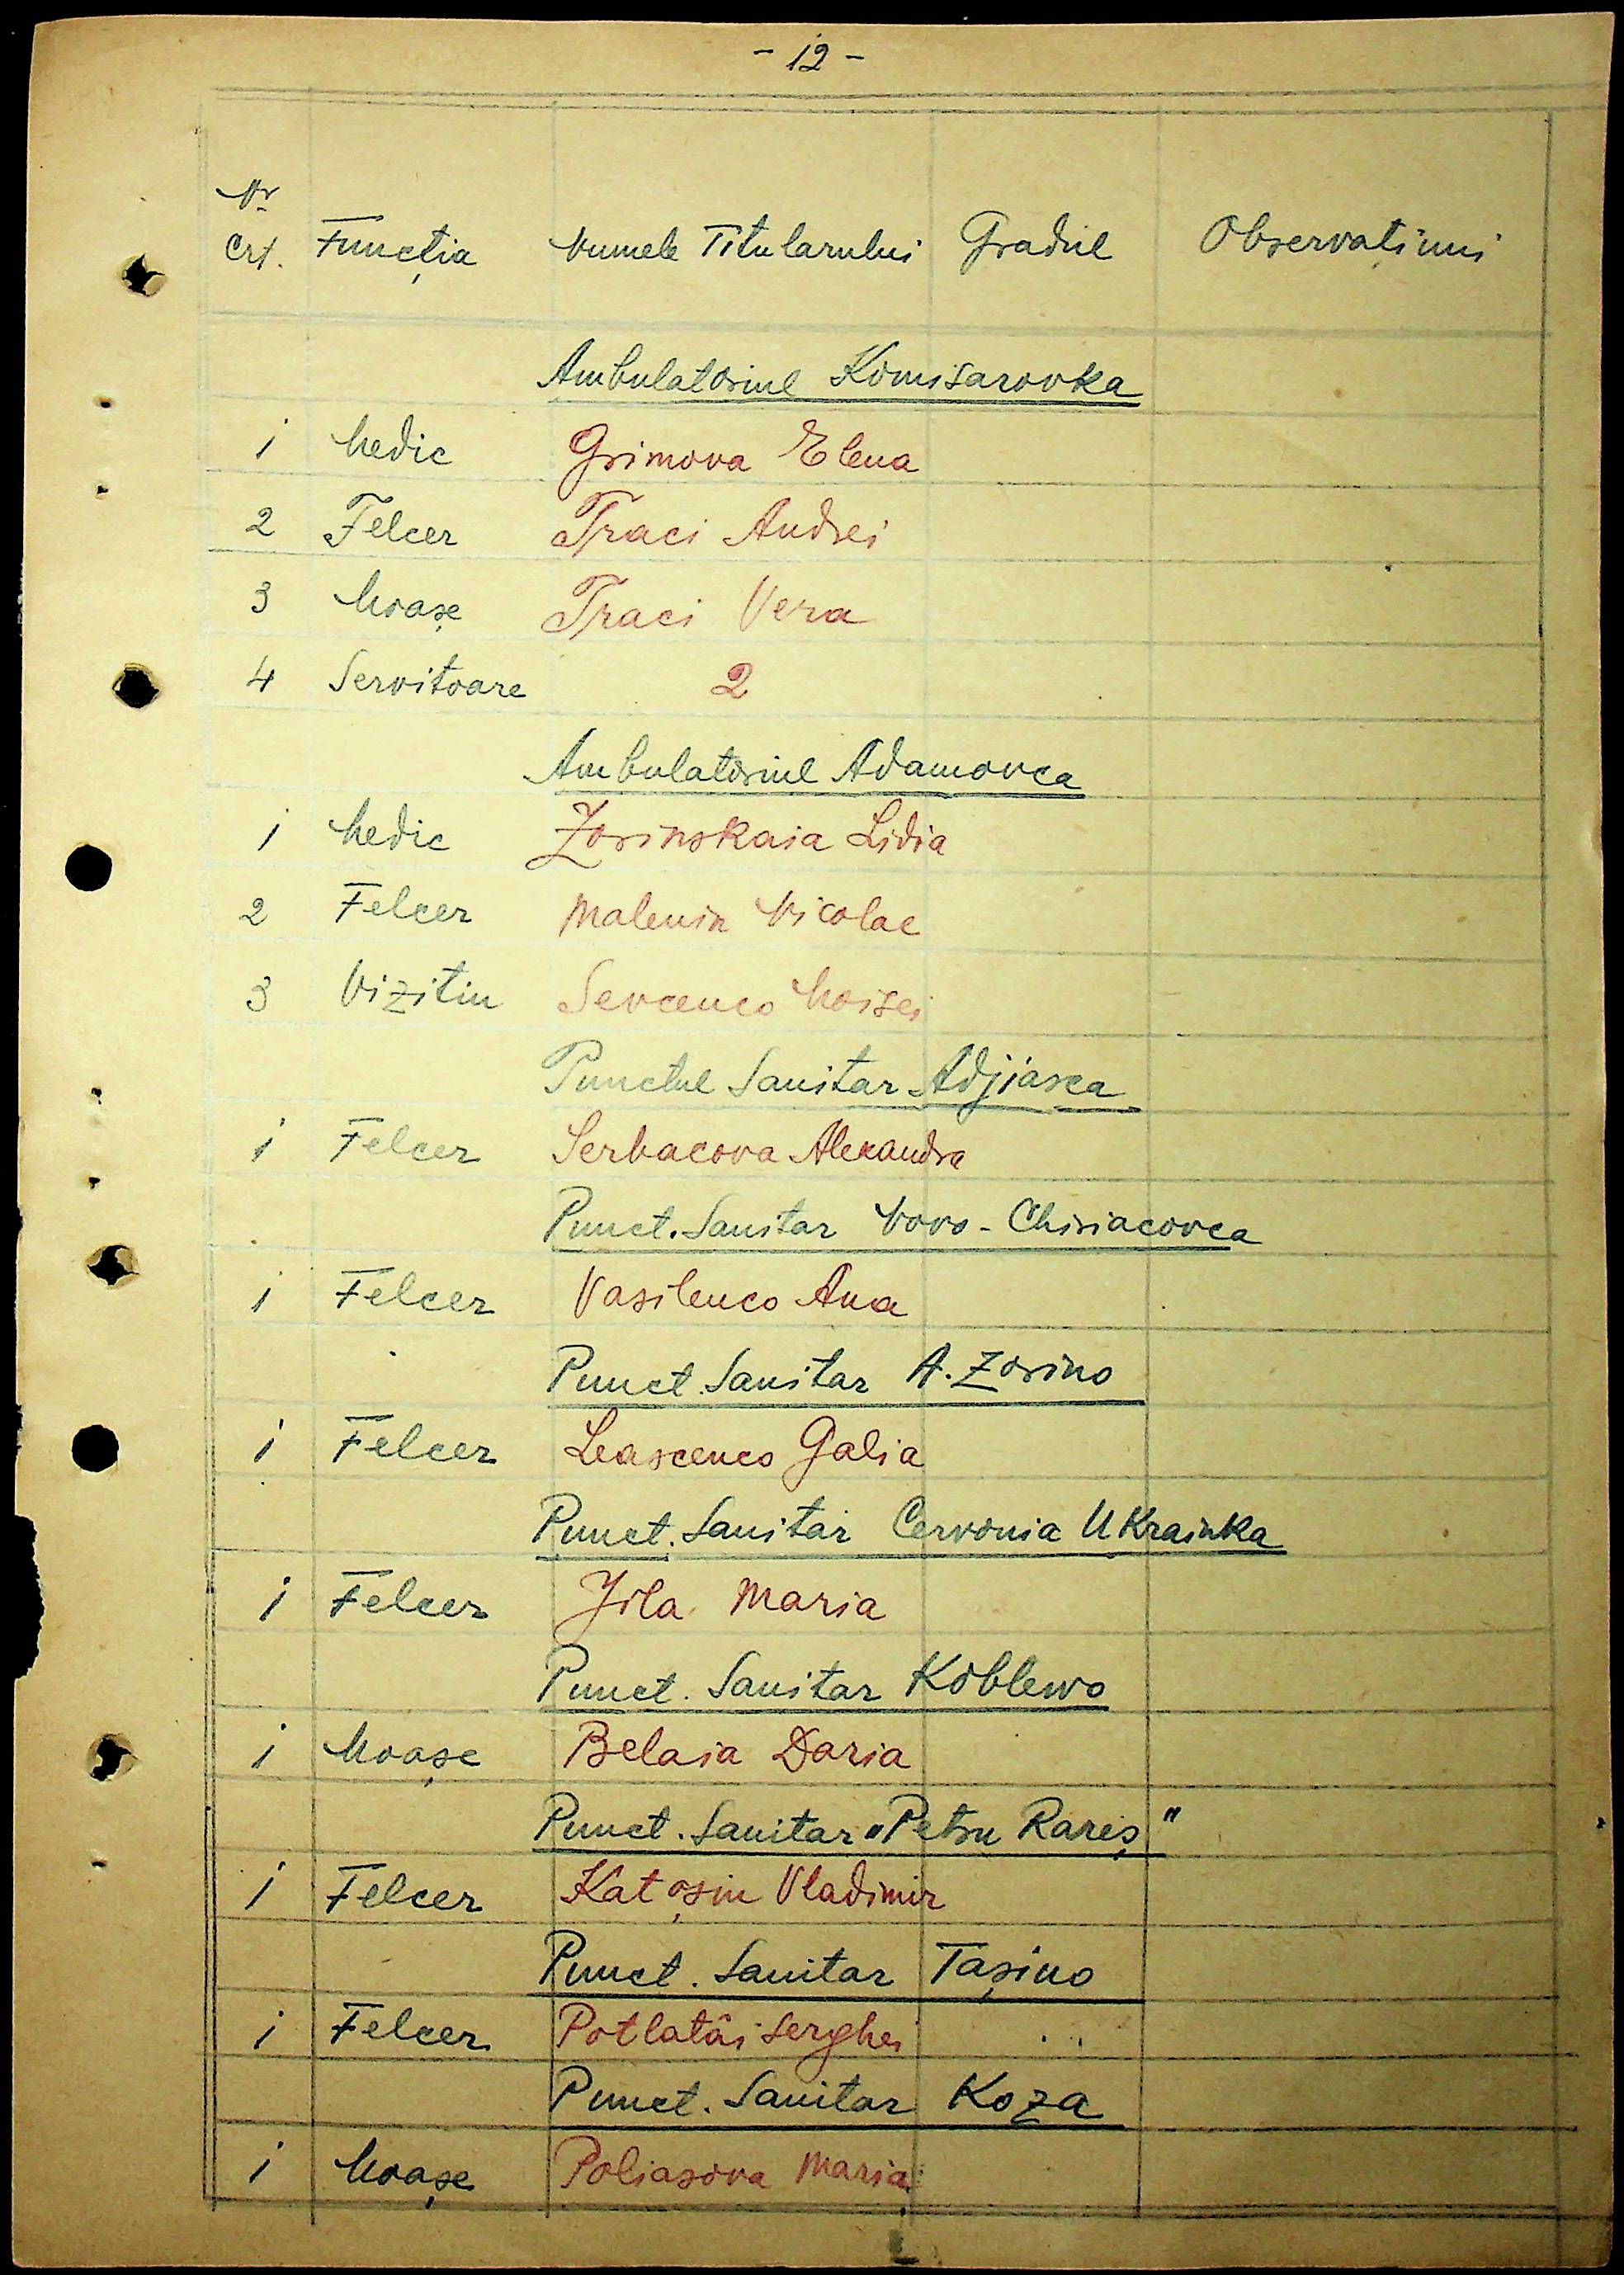 - 12 -
Nr
Crt. Funcția Numele Titularului Gradul Observațiuni
Ambulatoriul Komisarovka
1 Medic Grimova Elena
2 Felcer Traci Andrei
3 Moașe Traci Vera
4 Servitoare 2
Ambulatoriul Adamovca
1 Medic Zorinskaia Lidia
2 Felcer Malenin Nicolae
3 Vizitiu Sevcenco Moisei
Punctul Sanitar Adjiasca
1 Felcer Serbacova Alexandra
Punct. Sanitar Novo - Chiriacovca
1 Felcer Vasilenco Ana
Punct. Sanitar A. Zorino
1 Felcer Leascenco Galia
Punct. Sanitar Cervonia Ukrainka
1 Felcer Jila Maria
Punct. Sanitar Koblewo
1 Moașe Belaia Daria
Punct. Sanitar „Petru Rareș"
1 Felcer Katoșin Vladimir
Punct. Sanitar Tașino
1 Felcer Potlatâi Serghei
Punct. Sanitar Koza
1 Moașe Poliasova Maria